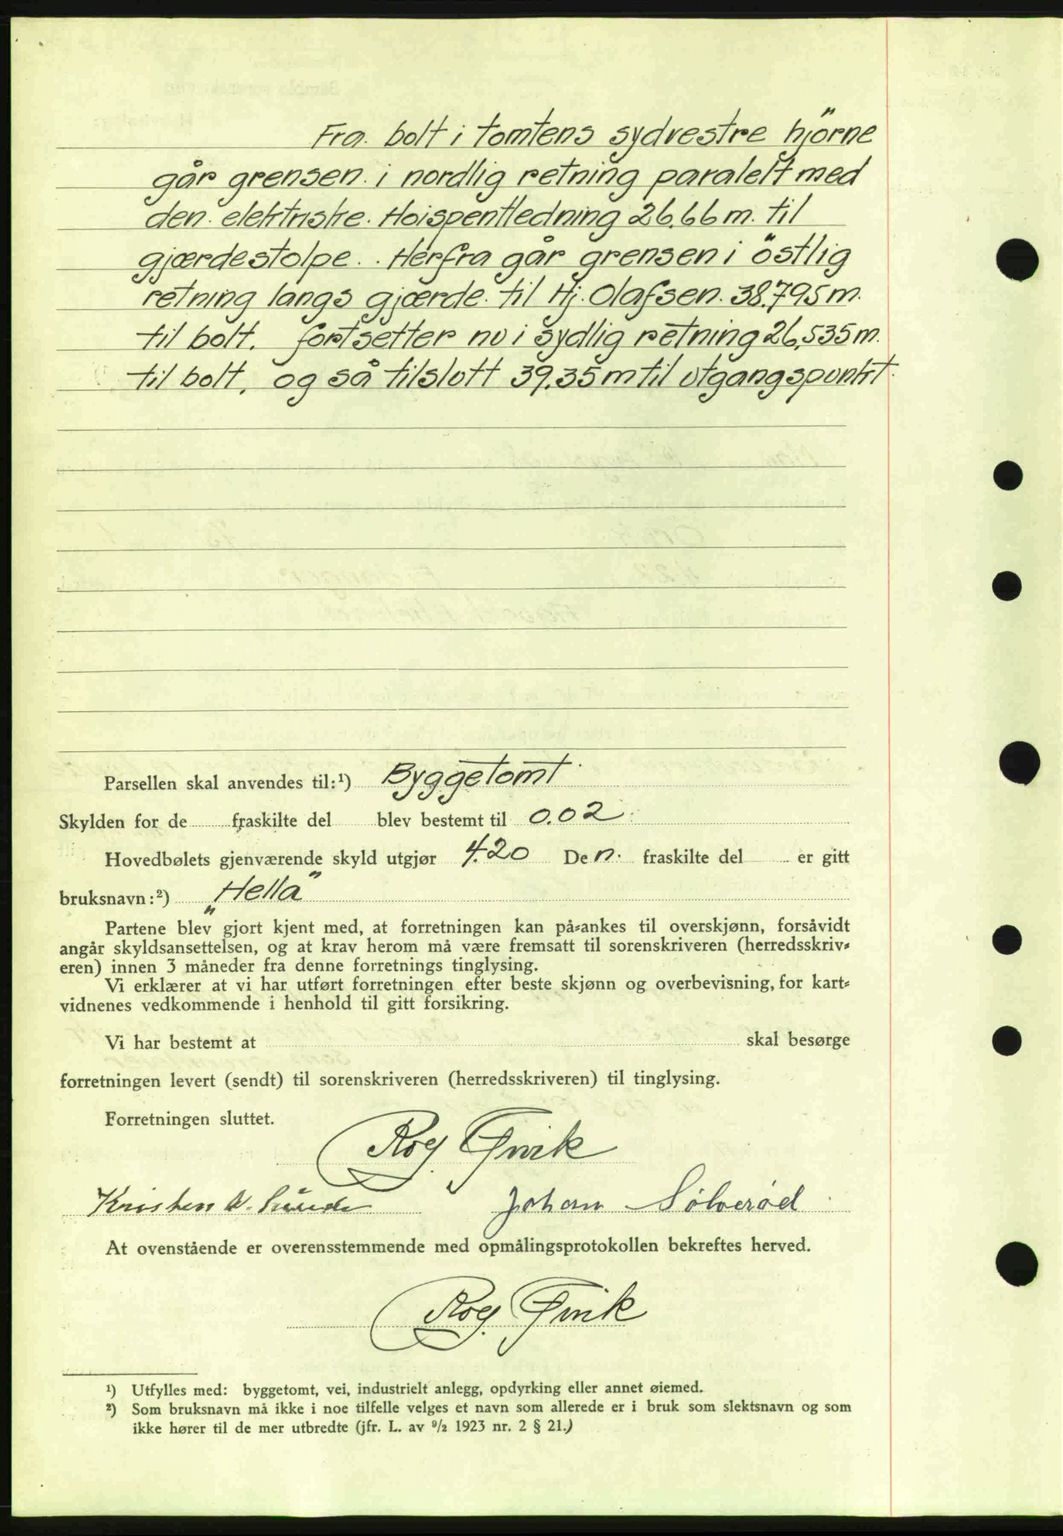 Fra. bolt i tomtens sydvestre hjörne
går grensen. i nordlig retning paralelt med
den. elektriske. Hoispentledning 26.66 m. til
gjærdestolpe. . Herfra går grensen i östlig
retning langs gjærde. til Hj. Olafsen. 38.795 m.
til bolt. fortsetter nu i sydlig retning 26,535 m.
til bolt, og så tilslutt 39.35 m til utgangspunkt.
Parsellen skal anvendes til:¹) Byggetomt.
Skylden for de fraskilte del blev bestemt til 0.02
Hovedbølets gjenværende skyld utgjør 4.20 Den. fraskilte del er gitt
bruksnavn:²) „Hella"
Partene blev gjort kjent med, at forretningen kan på-ankes til overskjønn, forsåvidt
angår skyldsansettelsen, og at krav herom må være fremsatt til sorenskriveren (herredsskriv-
eren) innen 3 måneder fra denne forretnings tinglysing.
Vi erklærer at vi har utført forretningen efter beste skjønn og overbevisning, for kart-
vidnenes vedkommende i henhold til gitt forsikring.
Vi har bestemt at skal besørge
forretningen levert (sendt) til sorenskriveren (herredsskriveren) til tinglysing.
Forretningen sluttet.
Rog.
Kristen Johan Sölverød
At ovenstående er overensstemmende med opmålingsprotokollen bekreftes herved.
Rog.
¹) Utfylles med: byggetomt, vei, industrielt anlegg, opdyrking eller annet øiemed.
²) Som bruksnavn må ikke i noe tilfelle velges et navn som allerede er i bruk som slektsnavn og som
ikke hører til de mer utbredte (jfr. L. av ⁹/₂ 1923 nr. 2 § 21.)